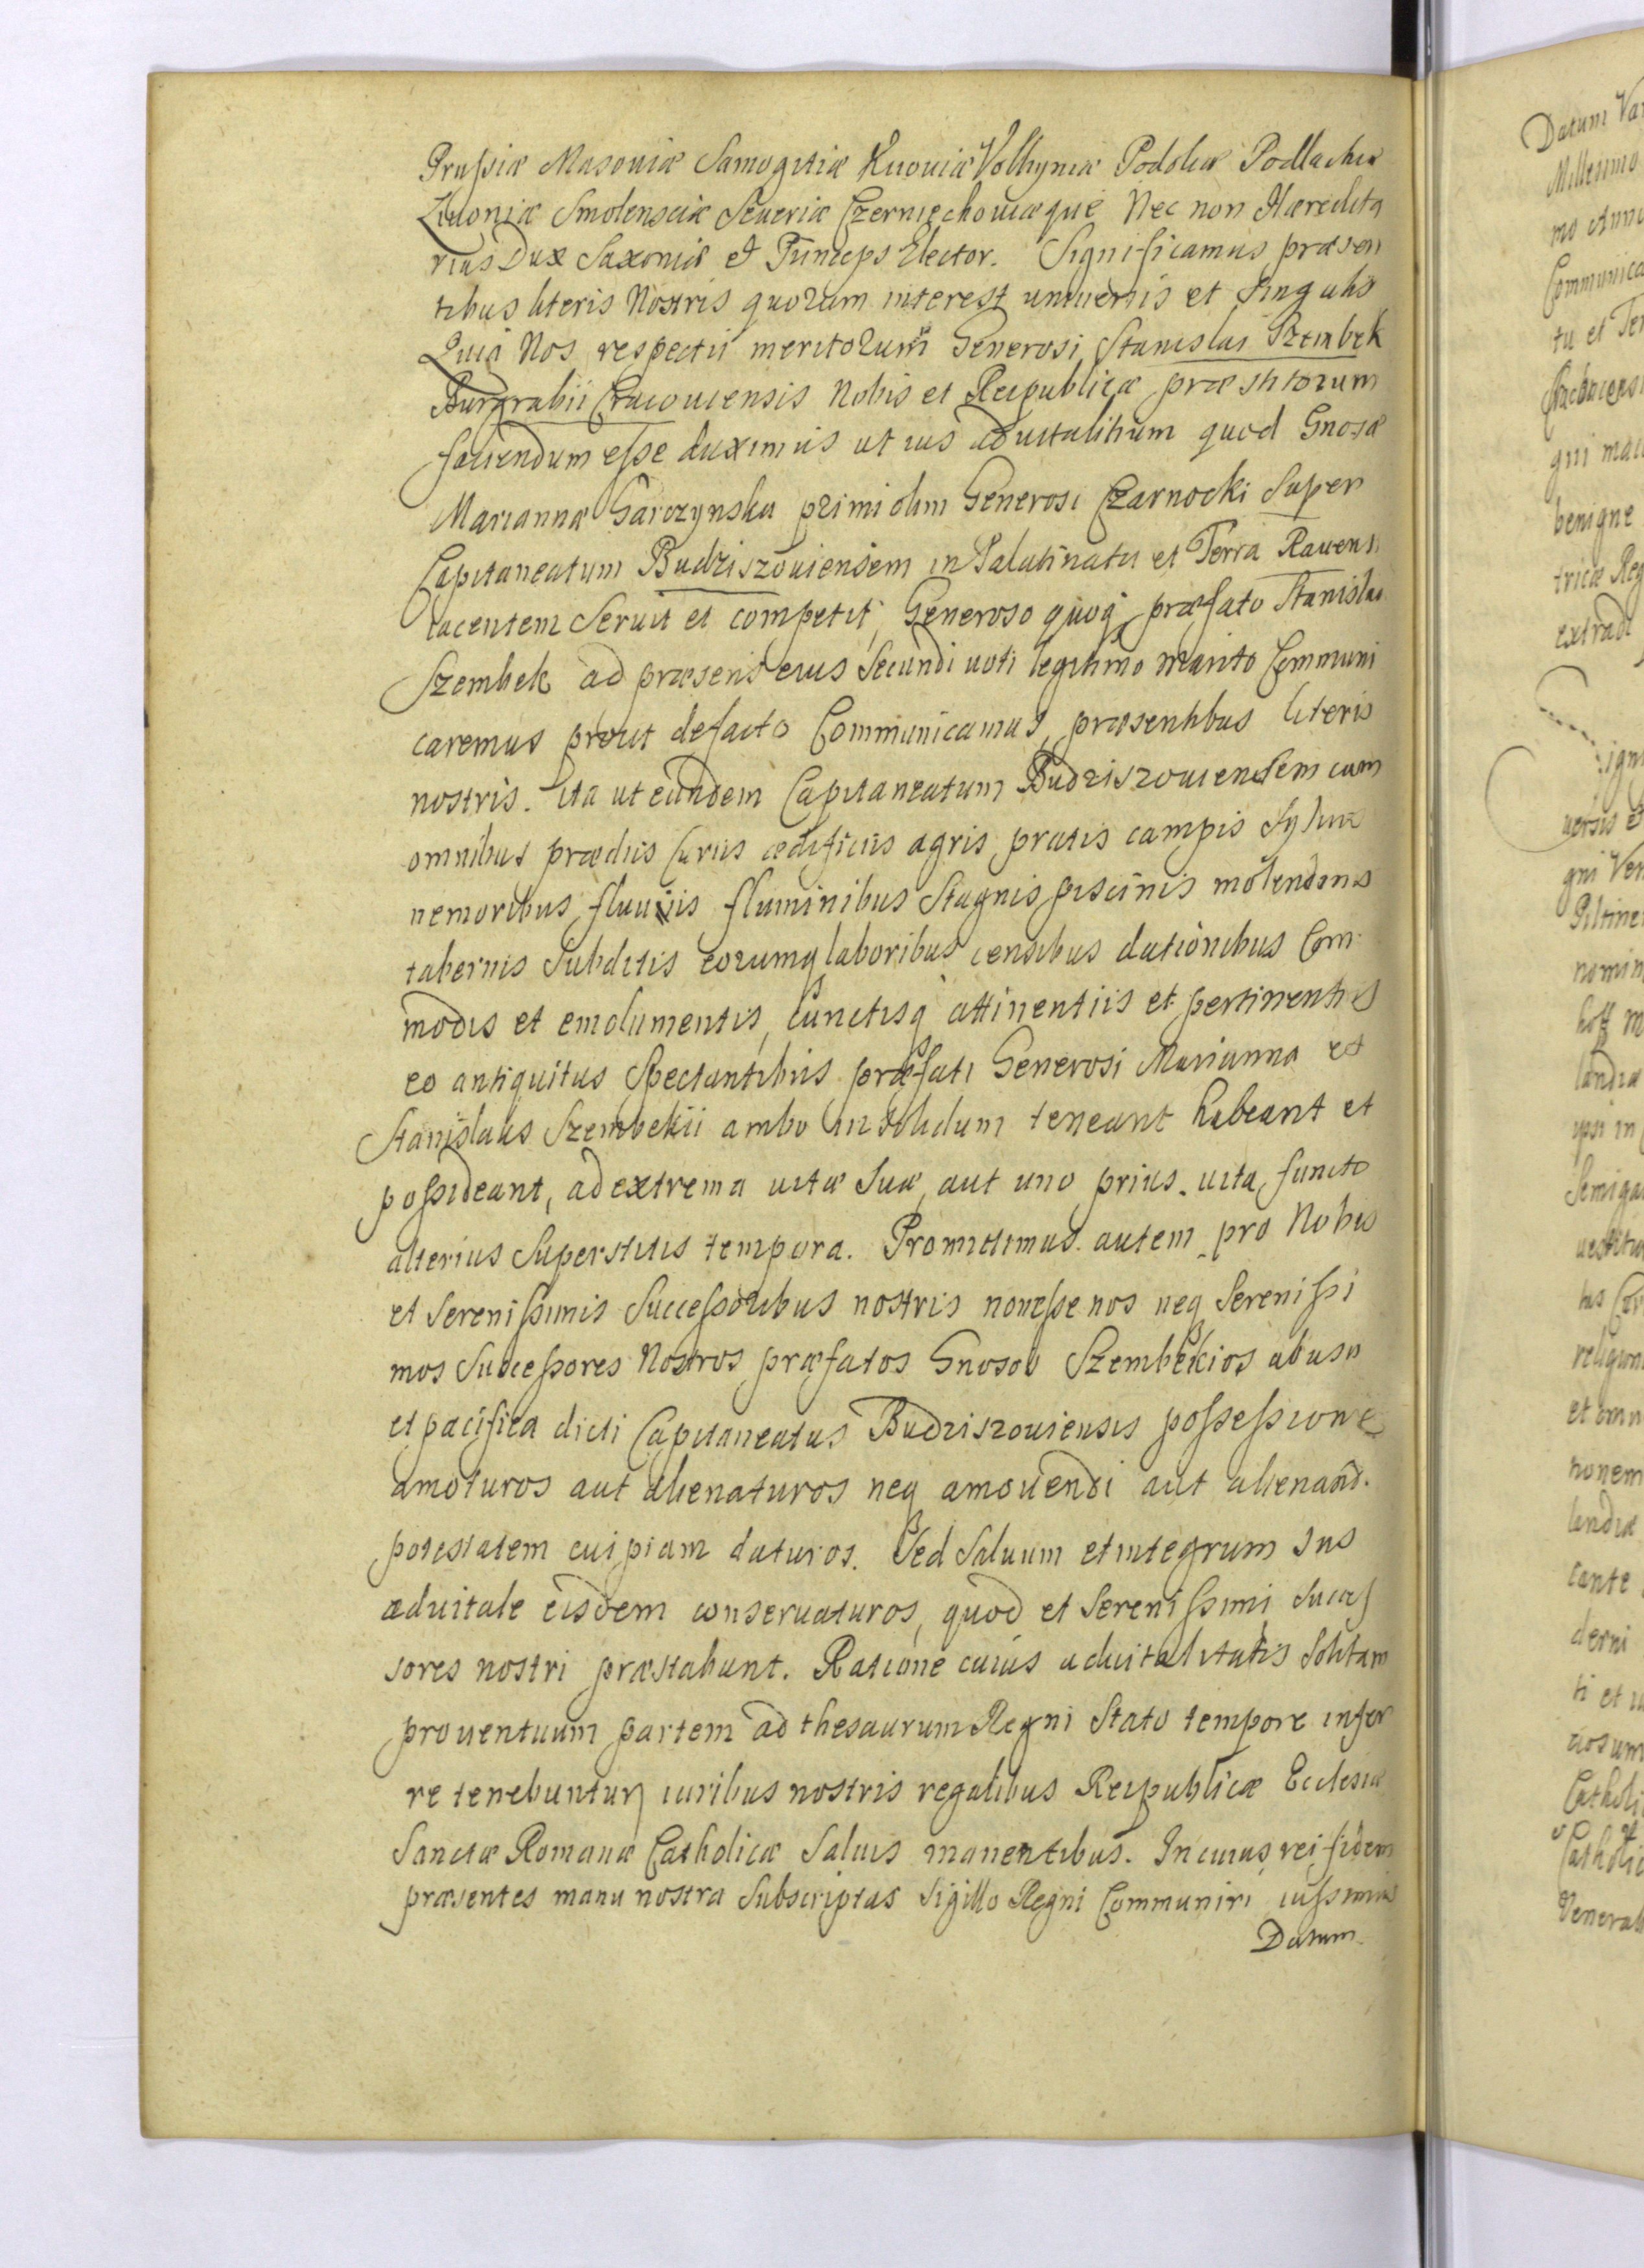 Prussiæ Masoviæ Samogitiæ Kijoviæ Volhyniæ Podoliæ Podlachiæ
Livoniæ Smolensciæ Severiæ Czerniechoviæque Nec non Hæredita
rius Dux Saxoniæ et Princeps Elector. Significamus præsen
tibus literis Nostris quorum interest universis et singulis
Quia Nos respectu meritorum Generosi Stanislai Szembek
Burgrabii Cracoviensis Nobis et Reipublicæ præstitorum
faciendum esse duximus ut ius advitalitium quod Gnosæ
Mariannæ Garczynska primi olim Generosi Czarnocki super
Capitaneatum Budziszoviensem in Palatinatu et Terra Ravensi
iacentem servit et competit, Generoso quoq præfato Stanislao
Szembek ad præsens eius secundi voti legitimo marito Communi
caremus prout de facto Communicamus, præsentibus literis
nostris. Ita ut eundem Capitaneatum Budziszoviensem cum
omnibus prædiis curiis ædificiis agris pratis campis sylvis
nemoribus fluviis fluminibus stagnis piscinis molendinis
tabernis subditis eorumq laboribus censibus dationibus Com
modis et emolumentis, cunctisq attinentiis et pertinentiis
eo antiquitus spectantibus præfati Generosi Marianna et
Stanislaus Szembekii ambo in solidum teneant habeant et
possideant, ad extrema vitæ suæ, aut uno prius vita functo
alterius superstitis tempora. Promittimus autem pro Nobis
et Serenissimis Successoribus nostris non esse nos neq Serenissi
mos Successores Nostros præfatos Gnosos Szembekios ab usu
et pacifica dicti Capitaneatus Budziszoviensis possessione
amoturos aut alienaturos neq amovendi aut alienand.
potestatem cuipiam daturos. Sed salvum et integrum Ius
advitale eisdem conservaturos, quod et Serenissimi Succes
sores nostri præstabunt. Ratione cuius advitalitatis solitam
proventuum partem ad thesaurum Regni stato tempore infer
re tenebuntur, iuribus nostris regalibus Reipublicæ Ecclesiæ
Sanctæ Romanæ Catholicæ salvis manentibus. In cuius rei fidem
præsentes manu nostra subscriptas sigillo Regni Communiri iussimus
Datum
Datum Var
Millesimo
mo Anno
Communica
tu et Ter
gni mai
benigne
tricæ Reg
extradi
versis e
gni Ven
Piltine
nomin
hoff M
landiæ
ipsi in
Semiga
religion
et omn
nonem
landiæ
cante
derni
ti et u
Catholi
Catholic
Venerab